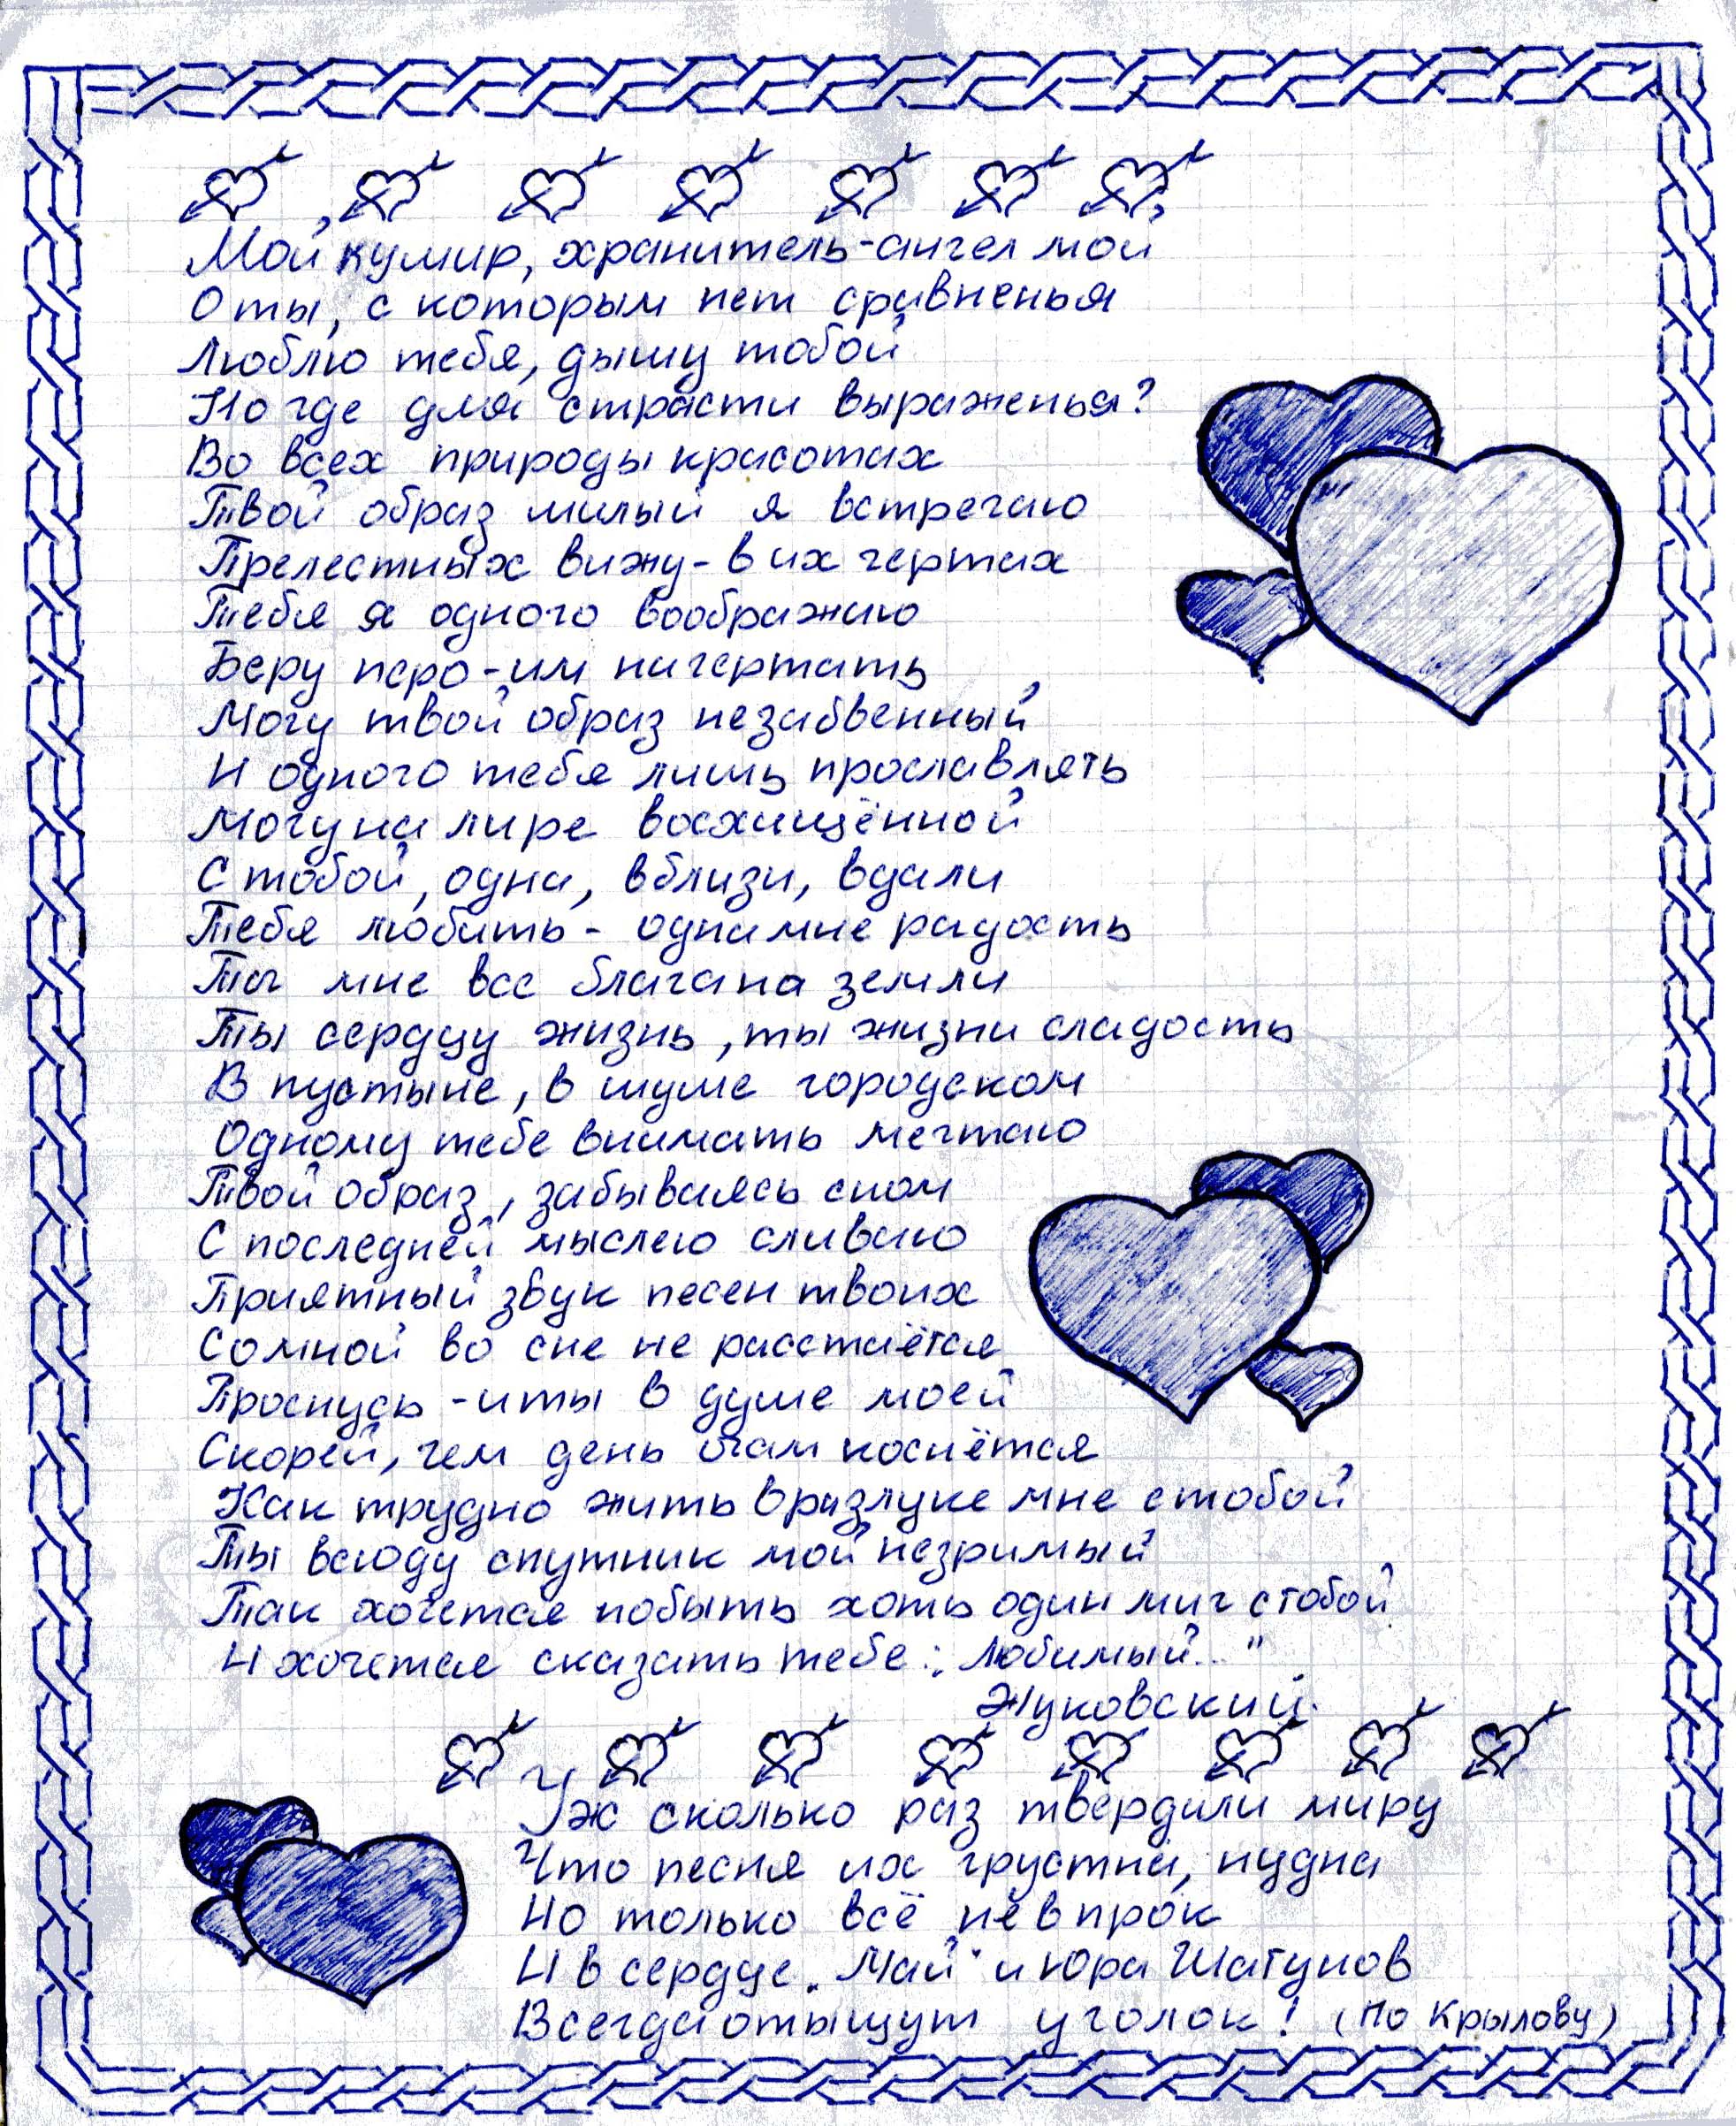 Мой кумир, хранитель-ангел мой
О ты, с которым нет сравненья
Люблю тебя, дышу тобой
Но где для страсти выраженья?
Во всех природы красотах
Твой образ милый я встречаю
Прелестных вижу - в их чертах
Тебя я одного воображаю
Беру перо - им начертать
Могу твой образ незабвенный
И одного тебя лишь прославлять
Могу на лире восхищённой
С тобой, одна, вблизи, вдали
Тебя любить - одна мне радость
Ты мне все блага на земли
Ты сердцу жизнь, ты жизни сладость
В пустыне, в шуме городском
Одному тебе внимать мечтаю
Твой образ, забываясь сном
С последней мыслею сливаю
Приятный звук песен твоих
Со мной во сне не расстаётся
Проснусь - и ты в душе моей
Скорей, чем день очам коснётся
Как трудно жить в разлуке мне с тобой
Ты всюду спутник мой незримый
Так хочется побыть хоть один миг с тобой
И хочется сказать тебе: „Любимый..."
Жуковский.
Уж сколько раз твердили миру
Что песня их грустна, нудна
Но только всё не в прок
И в сердце „Май" и Юра Шатунов
Всегда отыщут уголок! (По Крылову)